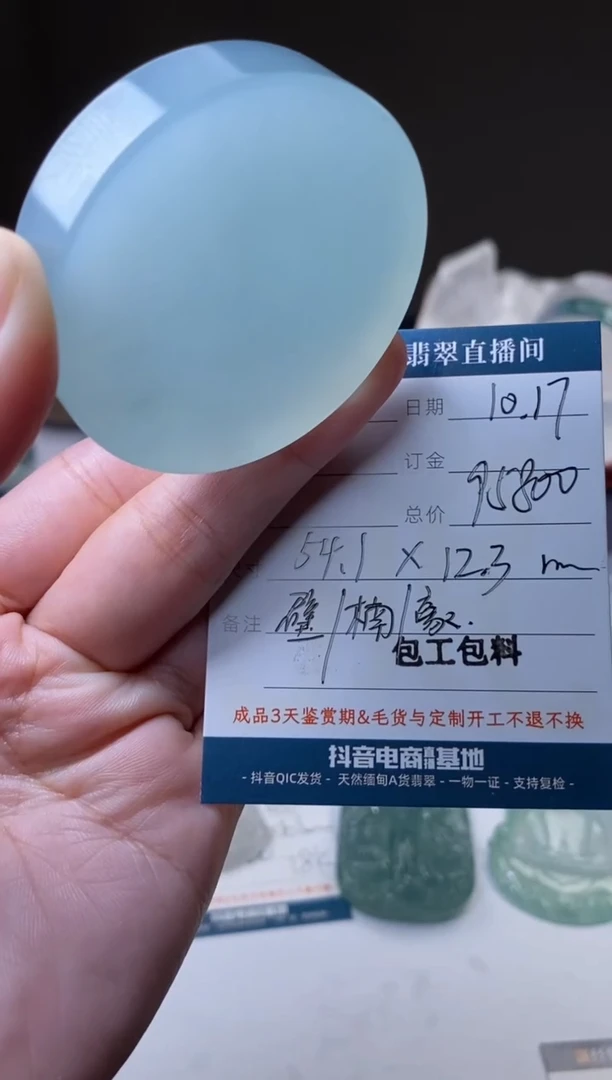 翡翠直播间
日期 10.17
订金
总价 95800
54.1 X 12.3 m
备注 璧/楠/豪.
包工包料
成品3天鉴赏期&毛货与定制开工不退不换
抖音电商直播基地
- 抖音QIC发货 - 天然缅甸A货翡翠 - 一物一证 - 支持复检 -